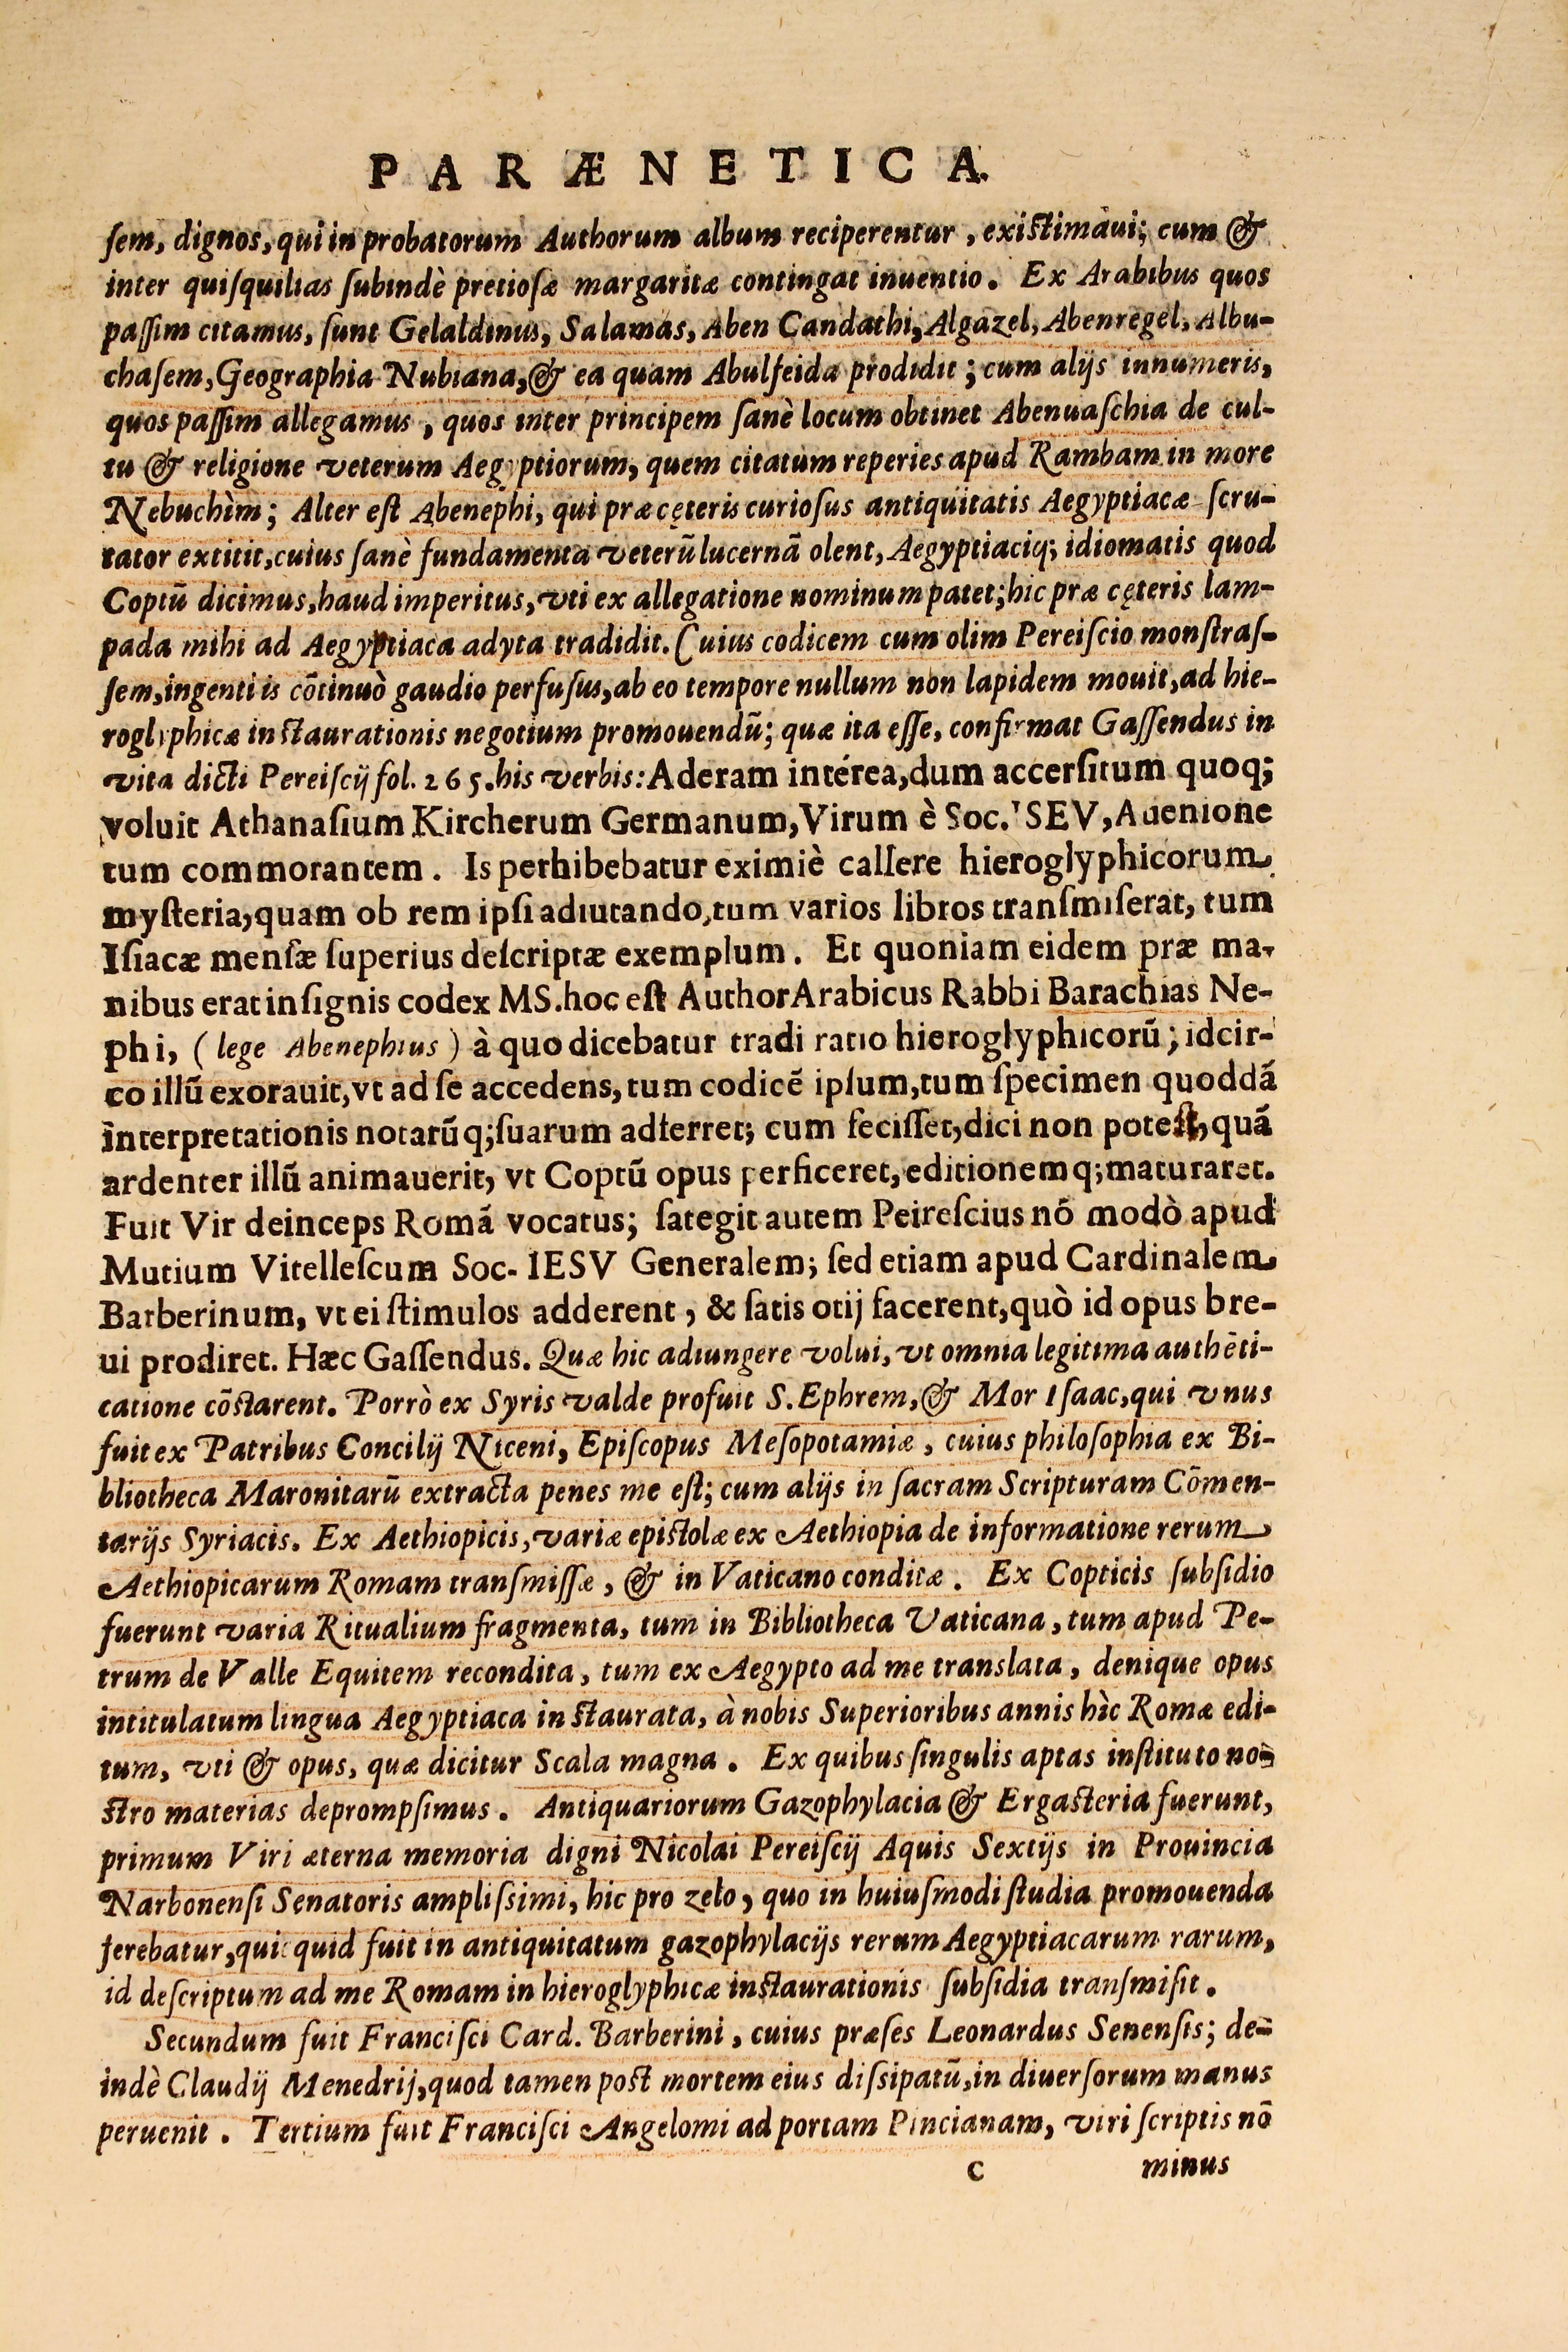 PARÆNETICA.
ſem, dignos, qui in probatorum Authorum album reciperentur, exiſtimaui; cum &
inter quiſquilias ſubindè pretioſæ margaritæ contingat inuentio. Ex Arabibus quos
paſſim citamus, ſunt Gelaldinus, Salamas, Aben Candathi, Algazel, Abenregel, Albu-
chaſem, Geographia Nubiana, & ea quam Abulfeida prodidit; cum alijs innumeris,
quos paſſim allegamus, quos inter principem ſanè locum obtinet Abenuaſchia de cul-
tu & religione veterum Aegyptiorum, quem citatum reperies apud Rambam in more
Nebuchìm; Alter eſt Abenephi, qui præ cęteris curioſus antiquitatis Aegyptiacæ ſcru-
tator extitit, cuius ſanè fundamenta veterū lucernā olent, Aegyptiaciq; idiomatis quod
Coptū dicimus, haud imperitus, vti ex allegatione nominum patet; hic præ cęteris lam-
pada mihi ad Aegyptiaca adyta tradidit. Cuius codicem cum olim Pereiſcio monſtraſ-
ſem, ingenti is cōtinuò gaudio perfuſus, ab eo tempore nullum non lapidem mouit, ad hie-
roglyphicæ inſtaurationis negotium promouendū; quæ ita eſſe, confirmat Gaſſendus in
vita dicti Pereiſcij fol. 265. his verbis: Aderam intérea, dum accerſitum quoq;
voluit Athanaſium Kircherum Germanum, Virum è Soc. ISEV, Auenione
tum commorantem. Is perhibebatur eximiè callere hieroglyphicorum
myſteria, quam ob rem ipſi adiutando, tum varios libros tranſmiſerat, tum
Iſiacæ menſæ ſuperius deſcriptæ exemplum. Et quoniam eidem præ ma-
nibus erat inſignis codex MS. hoc eſt Author Arabicus Rabbi Barachias Ne-
phi, (lege Abenephius) à quo dicebatur tradi ratio hieroglyphicorū; idcir-
co illū exorauit, vt ad ſe accedens, tum codicē ipſum, tum ſpecimen quoddā
interpretationis notarūq; ſuarum adferret; cum feciſſet, dici non poteſt, quā
ardenter illū animauerit, vt Coptū opus perficeret, editionemq; maturaret.
Fuit Vir deinceps Romā vocatus; ſategit autem Peireſcius nō modò apud
Mutium Vitelleſcum Soc. IESV Generalem; ſed etiam apud Cardinalem
Barberinum, vt ei ſtimulos adderent, & ſatis otij facerent, quò id opus bre-
ui prodiret. Hæc Gaſſendus. Quæ hic adiungere volui, vt omnia legitima authēti-
catione cōſtarent. Porrò ex Syris valde profuit S. Ephrem, & Mor Iſaac, qui vnus
fuit ex Patribus Concilij Niceni, Epiſcopus Meſopotamiæ, cuius philoſophia ex Bi-
bliotheca Maronitarū extracta penes me eſt; cum alijs in ſacram Scripturam Cōmen-
tarijs Syriacis. Ex Aethiopicis, variæ epiſtolæ ex Aethiopia de informatione rerum
Aethiopicarum Romam tranſmiſſæ, & in Vaticano conditæ. Ex Copticis ſubſidio
fuerunt varia Ritualium fragmenta, tum in Bibliotheca Vaticana, tum apud Pe-
trum de Valle Equitem recondita, tum ex Aegypto ad me translata, denique opus
intitulatum lingua Aegyptiaca inſtaurata, à nobis Superioribus annis hìc Romæ edi-
tum, vti & opus, quæ dicitur Scala magna. Ex quibus ſingulis aptas inſtituto no-
ſtro materias deprompſimus. Antiquariorum Gazophylacia & Ergaſteria fuerunt,
primum Viri æterna memoria digni Nicolai Pereiſcij Aquis Sextijs in Prouincia
Narbonenſi Senatoris ampliſsimi, hic pro zelo, quo in huiuſmodi ſtudia promouenda
ferebatur, quicquid fuit in antiquitatum gazophylacijs rerum Aegyptiacarum rarum,
id deſcriptum ad me Romam in hieroglyphicæ inſtaurationis ſubſidia tranſmiſit.
Secundum fuit Franciſci Card. Barberini, cuius præſes Leonardus Senenſis; de-
indè Claudij Menedrij, quod tamen poſt mortem eius diſsipatū, in diuerſorum manus
peruenit. Tertium fuit Franciſci Angelomi ad portam Pincianam, viri ſcriptis nō
C minus